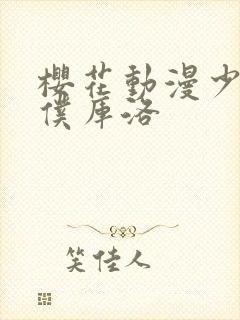 櫻花動漫少
僕库洛
笑佳人